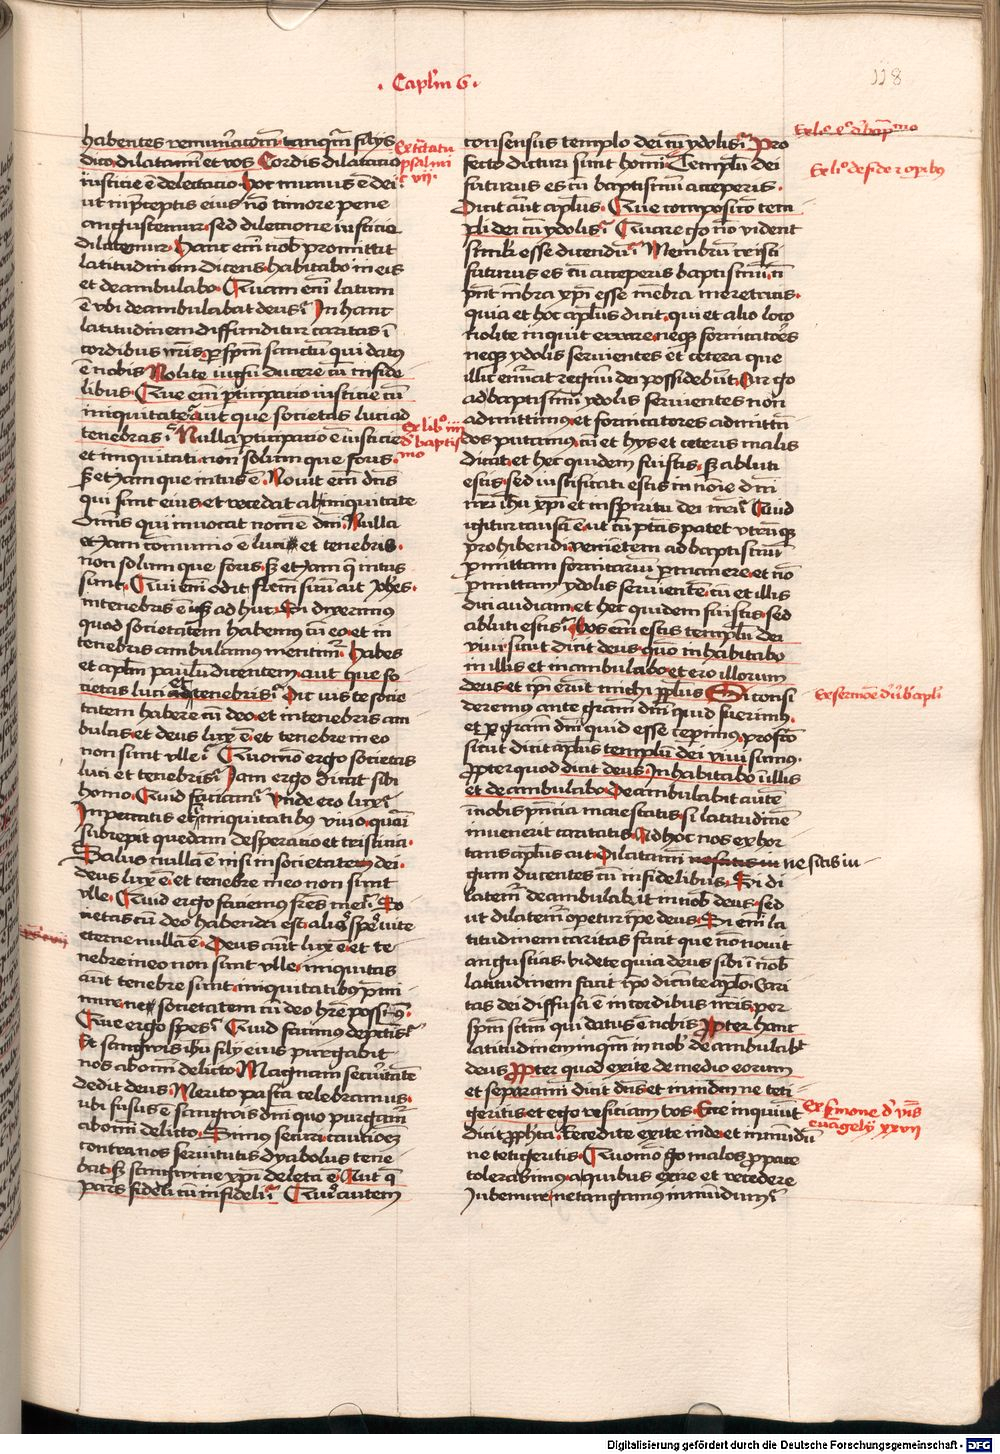 · Caplm 6 ·
118
habentes remuneracōem tanqm filijs
dico dilatamī et vos Cordis dilatacio
iusticie ē delectacio hoc munus ē dei
ut in pceptis eius nō timore pene
angustemur sed dilectione iusticie
dilatemur Hanc em̄ nob promittit
latitudinem dicens habitabo in eis
et deambulabo Quam em̄ latum
ē vbi deambulabat deus In hanc
latitudinem diffunditur caritas ī
cordibus nr̄is p spm̄ sanctū qui datus
ē nobis Nolite iugū ducere cū infide
libus Que em̄ pticipatio iusticie cū
iniquitate aut que societas luci ad
tenebras Nulla pticipatio ē iusticie
et iniquitati non solum que foris
sꝫ etiam que intus ē Nouit em̄ dn̄s
qui sunt eius et recedat ab iniquitate
omnis qui inuocat nomē dn̄i Nulla
etiam cōmunio ē luci et tenebris
non solum que foris sꝫ etiam q̄ intus
sunt Qui em̄ odit frem̄ suū aut
in tenebris ē usqꝫ adhuc Si dixerimus
quod societatem habemus cū eo et in
tenebris ambulamus mentimr̄ Habes
et aplm̄ paulū dicentem aut que so
cietas luci et ad tenebris Dic vis te socie
tatem habere cū deo et in tenebris am
bulas et deus lux ē et tenebre in eo
non sunt vlle Quomō ergo societas
luci et tenebris Iam ergo dicat sibi
homo Quid faciam Vnde ero lux
In peccatis et iniquitatibus viuo quasi
subrepit quedam desperatio et tristicia
Salus nulla ē nisi in societatem dei
deus lux ē et tenebre in eo non sunt
vlle Quid ergo faciemus frēs mei So
cietas cū deo habenda est alioqꝫ spes vite
eterne nulla ē Deus aut lux ē et te
nebre in eo non sunt vlle iniquitas
aut tenebre sunt iniquitatibus pmi
mur ne societatem cū deo hr̄e possimus
Que ergo spes Quid facimus de pctīs
Et sangwis ihū filij eius purgabit
nos ab omī delicto Magnam securitatē
dedit deus Merito pasca celebramus
ubi fusus ē sangwis dn̄i quo purgamr̄
ab omī delicto Simus securi caucionē
contra nos seruitutis dyabolus tene
bat sꝫ sangwine xpī deleta ē Aut q̄
pars fideli cū infideli Qui autem
Ex tc̄tatu
psalmi
c vij
Ex lib° iiij
d' baptis
mo
consensus templo dei cū ydolis Pro
fecto dicturi sunt homī Templū dei
futurus es cū baptismū acceperis
Dicit aūt aplus Que composicō tem
pli dei cū ydolis Quare go nō vident
simlr esse dicendū Membrū cristi
futurus es cū acceperis baptismū nō
pn̄t mbra xpī esse mēbra meretricis
quia et hoc aplus dicit qui et alio loco
Nolite inquit errare neqꝫ fornicatores
neqꝫ ydolis seruientes et cetera que
illic em̄cat regnū dei possidebūt Cur go
ad baptismū ydolis seruientes non
admittimus et fornicatores admittēn
dos putamus cū et hys et ceteris malis
dicat et hec quidem fuistis sꝫ abluti
estis sed iustificati estis in noīe dn̄i
nr̄i ihū xpī et in spiritu dei nr̄i Quid
igitur causa ē ut cū ptās patet vtrūqꝫ
prohibendi venientem ad baptismū
pmittam fornicariū pmanere et nō
pmittam ydolis seruientē cū et illis
dici audiam et hec quidem fuistis sed
abluti estis Vos em̄ estis templū dei
viui sicut dicit deus quō inhabitabo
in illis et inambulabo et ero illorum
deus et ipī erūt michi pplus Si consi
deremus ante gram̄ dn̄i quid fuerimus
et p gram̄ dn̄i quid esse ceperimus profcō
sicut dicit aplus templū dei viui sumus
Propter quod dicit deus Inhabitabo ī illis
et deambulabo Deambulabit autē
in nobis pn̄cia maiestatis si latitudinē
inuenerit caritatis Ad hoc nos exhor
tans aplus ait Dilatamī ne sitis iu
gum ducentes cū infidelibus Si di
latemr̄ deambulabit in nob deus sed
ut dilatemr̄ opetur ipe deus Si em̄ la
titudinem caritas facit que nō nouit
angustias videte quia deus sibi ī nob
latitudinem facit ipō dicente aplo Cari
tas dei diffusa ē in cordibus nr̄is per
spm̄ sctm̄ qui datus ē nobis Propter hanc
latitudinem inqm̄ in nob deambulabt
deus Propter quod exite de medio eorum
et separamī dicit dn̄s et inmūdm ne teti
geritis et ego resiciam vos Ecce inquiunt
dicit ppheta Recedite exite inde et inmūdū
ne tetigeritis Quomō go malos p pace
tolerabimus a quibus exire et recedere
Iubemur ne tangamus inmūdum
Ex li° e° d' bap̄mo
Ex li° de fide ⁊ opibus
Ex sermōe d' vb' apli
Ex sermone d' v'bis
ewāgelij xxvij
Digitalisierung gefördert durch die Deutsche Forschungsgemeinschaft - DFG